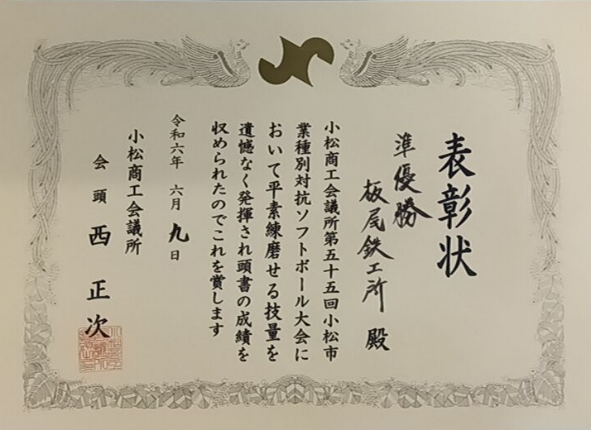 表彰状
準優勝
板尾鉄工所 殿
小松商工会議所第五十五回小松市
業種別対抗ソフトボール大会に
おいて平素練磨せる技量を
遺憾なく発揮され頭書の成績を
収められたのでこれを賞します
令和六年 六月 九日
小松商工会議所
会頭 西 正次